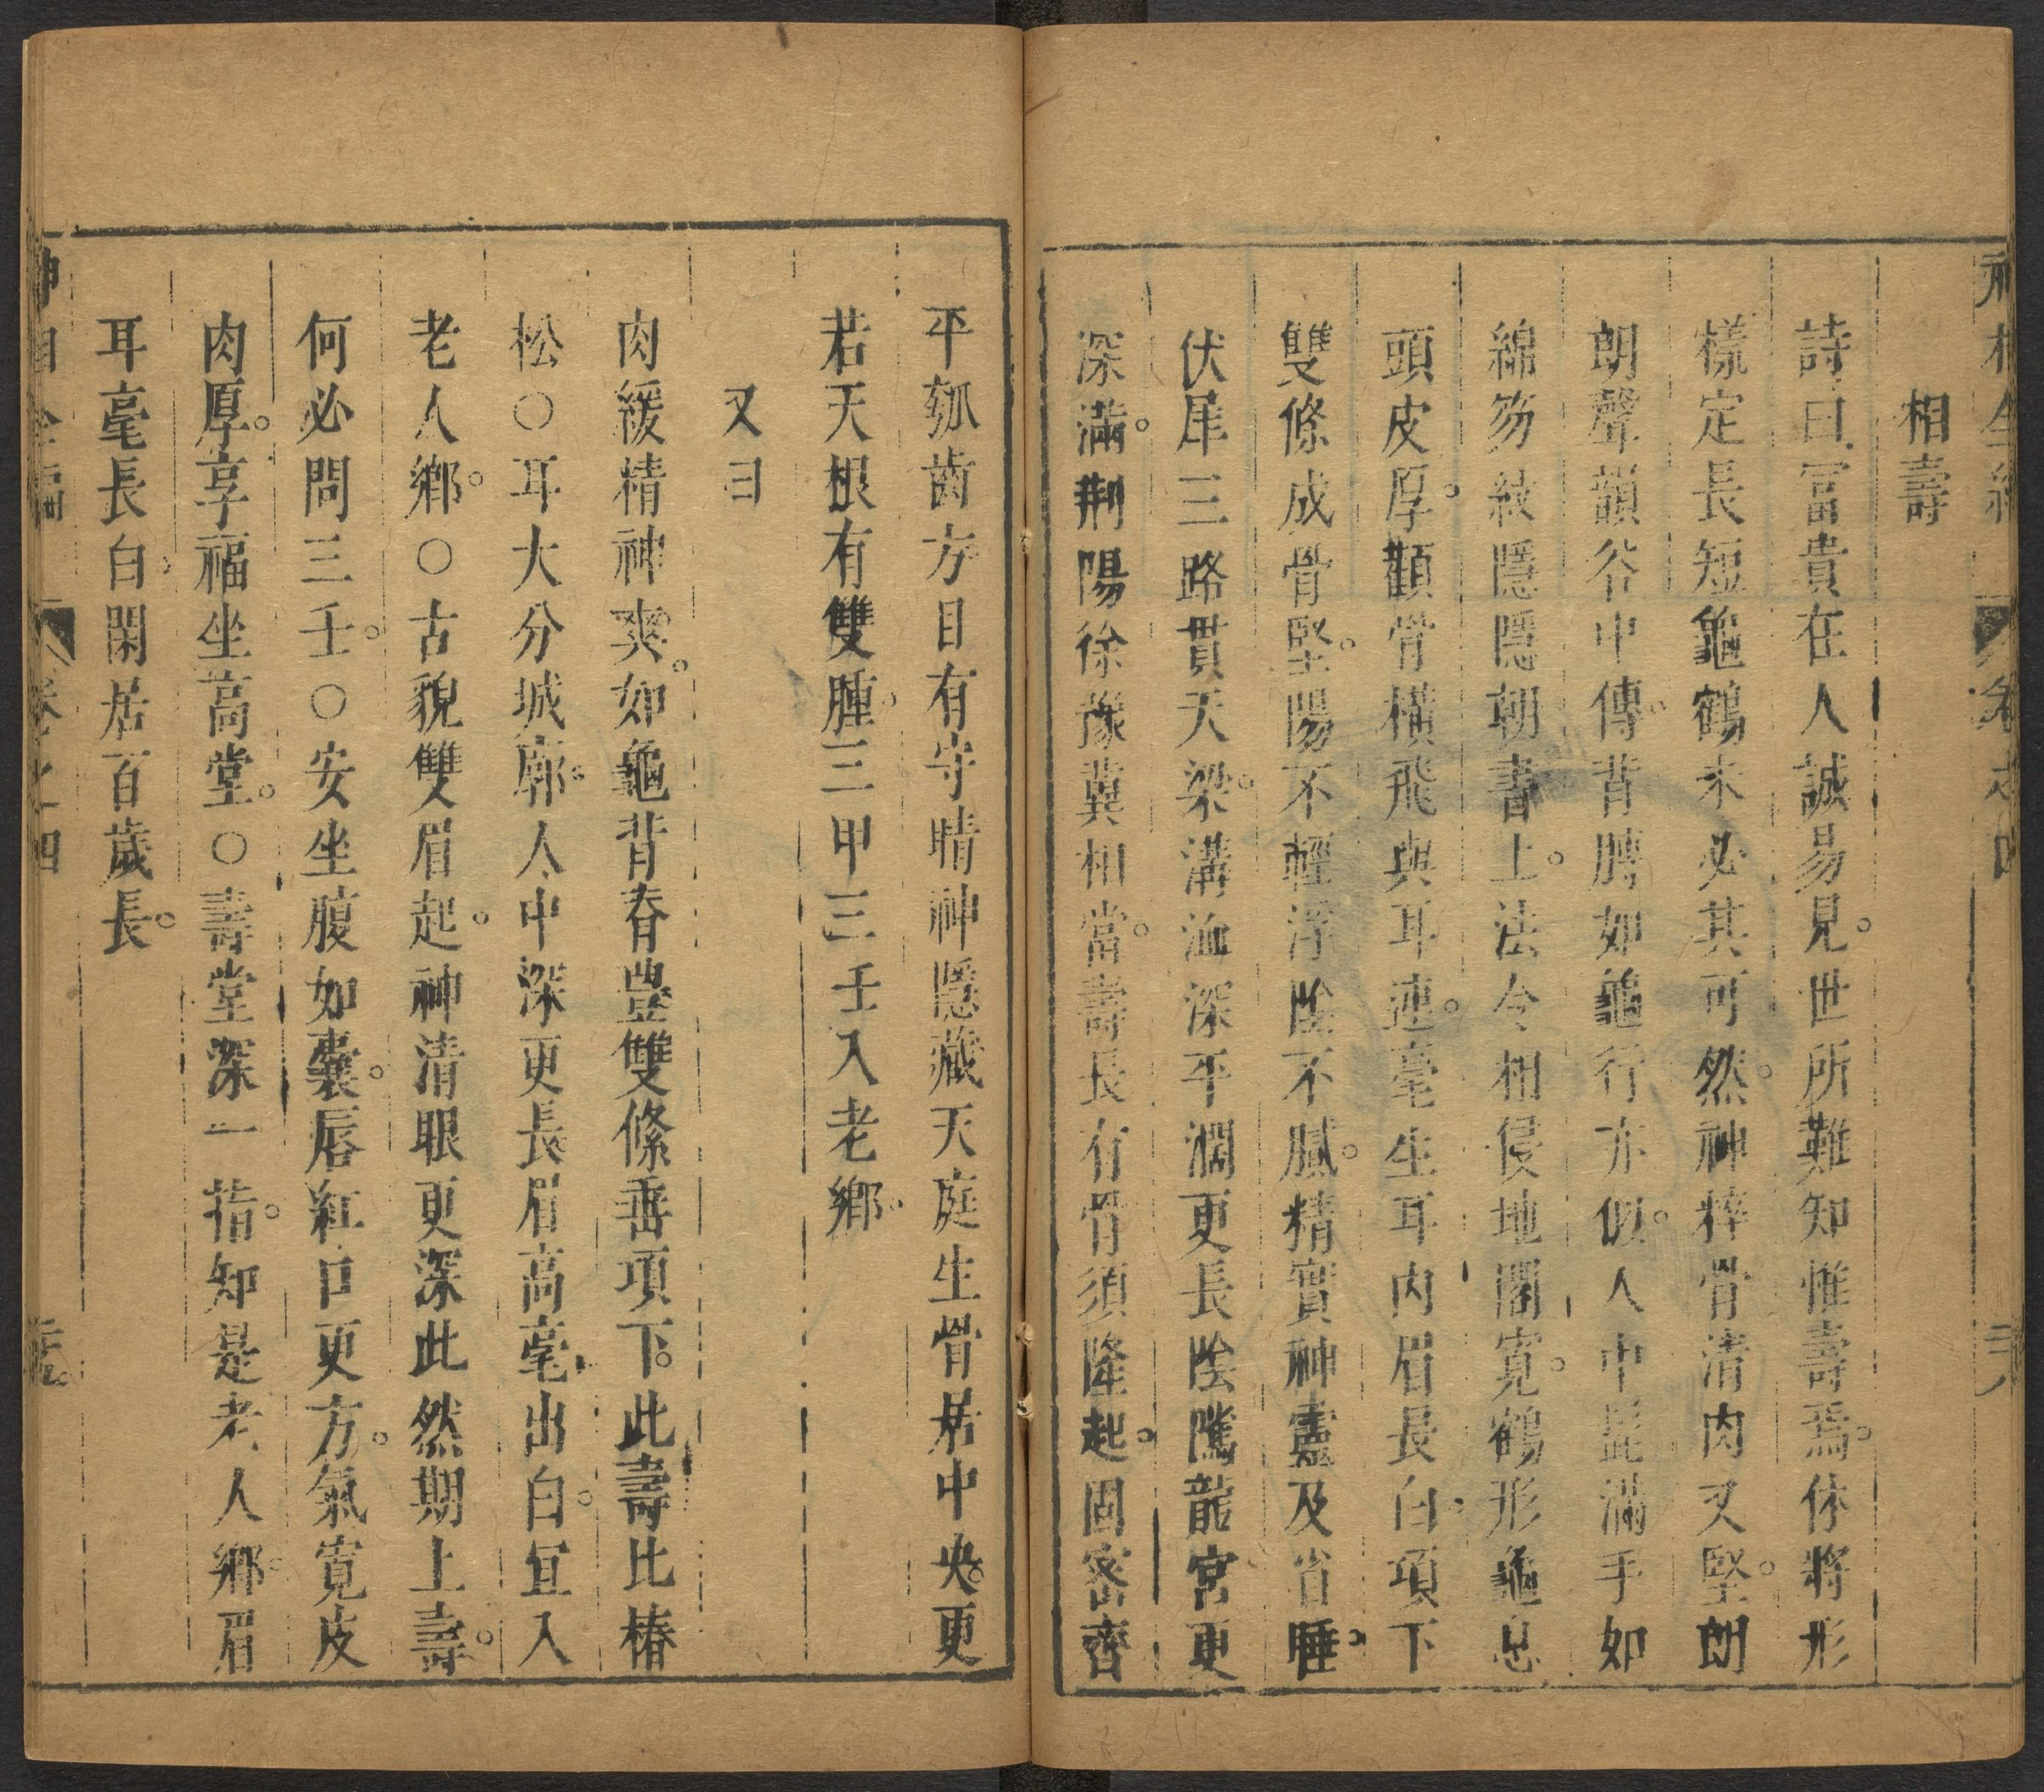 神相全編 卷之四 三八
相壽
詩曰富貴在人誠易見。世所難知惟壽焉。休將形
樣定長短龜鶴未必其可然。然神粹骨清肉又堅。朗
朗聲韻谷中傳。背膊如龜行亦似。人中髭滿手如
綿笏紋隱隱朝書上。法令相侵地閣寬。鶴形龜息
頭皮厚。顴骨橫飛與耳連。毫生耳內眉長白。項下
雙條成骨堅。陽不輕浮陰不膩。精實神靈及省睡。
伏犀三路貫天梁。溝洫深平濶更長陰隲龍宮更
深滿。荆陽徐豫冀相當。壽長有骨須隆起。固密齊
平瓠齒方。目有守睛神隱藏天庭生骨居中央。更
若天根有雙腫。三甲三壬入老鄉。
又曰
肉緩精神爽。如龜背脊豊雙絛垂項下。此壽比椿
松○耳大分城廓。人中深更長眉高毫出白。宜入
老人鄉。○古貌雙眉起。神清眼更深此然期上壽。
何必問三壬。○安坐腹如囊。唇紅口更方。氣寬皮
肉厚。享福坐高堂。○壽堂深一指。知是老人鄉。眉
耳毫長白閑居百歲長。
神相全編 卷之四